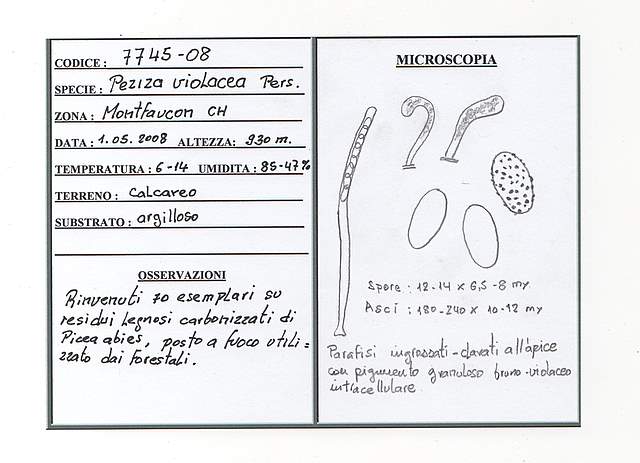 CODICE : 7745-08
SPECIE : Peziza violacea Pers.
ZONA : Montfaucon CH
DATA : 1.05.2008 ALTEZZA: 930 m.
TEMPERATURA : 6-14 UMIDITA : 85-47%
TERRENO : Calcareo
SUBSTRATO : argilloso
OSSERVAZIONI
Rinvenuti 70 esemplari su
residui legnosi carbonizzati di
Picea abies, posto a fuoco utili=
zzato dai forestali.
MICROSCOPIA
Spore : 12-14 x 6,5-8 my
Asci : 180-240 x 10-12 my
Parafisi ingrossati-clavati all'àpice
con pigmento granuloso bruno-violaceo
intracellulare